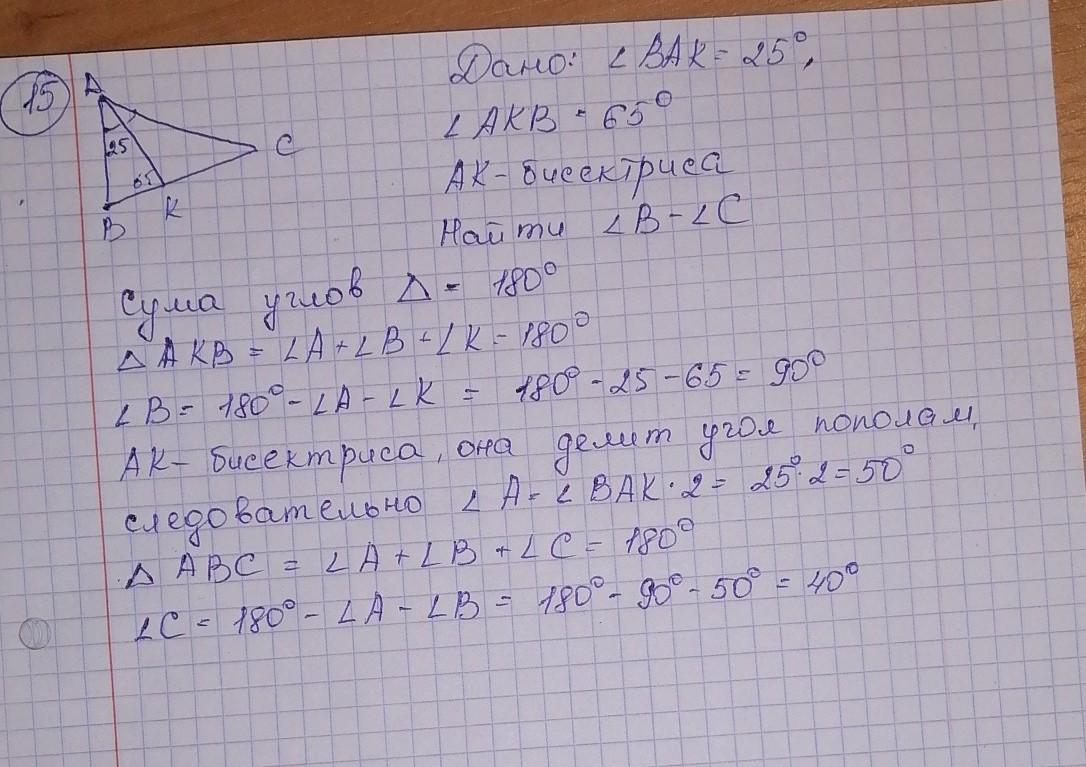 15
A
25
65
C
B
K
Дано: ∠BAK = 25°,
∠AKB = 65°
AK - бисектриса
Найти ∠B - ∠C
Сума углов Δ = 180°
Δ AKB = ∠A + ∠B + ∠K = 180°
∠B = 180° - ∠A - ∠K = 180° - 25 - 65 = 90°
AK - бисектриса, она делит угол пополам,
следовательно ∠A = ∠BAK · 2 = 25° · 2 = 50°
Δ ABC = ∠A + ∠B + ∠C = 180°
∠C = 180° - ∠A - ∠B = 180° - 90° - 50° = 40°